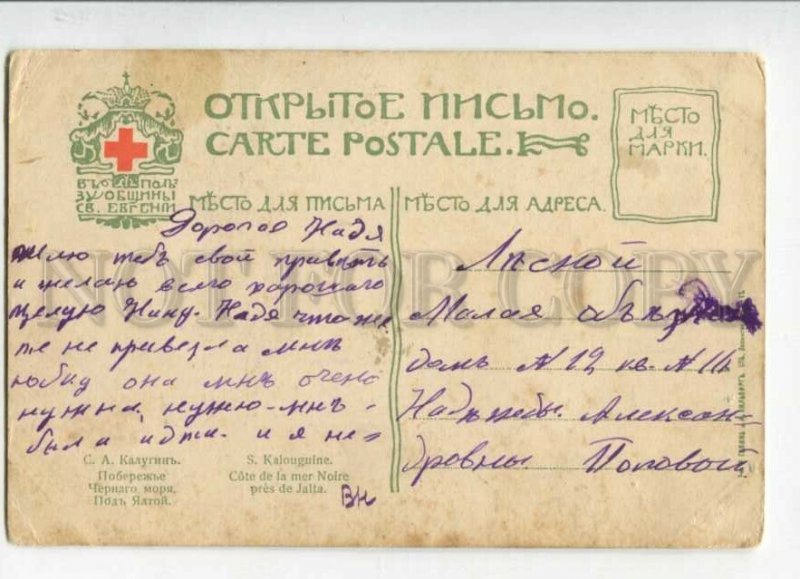 ОТКРЫТОЕ ПИСЬМО.
CARTE POSTALE.
МѢСТО
ДЛЯ
МАРКИ.
ВЪ ПОЛЬ
ЗУ ОБЩИНЫ
СВ. ЕВГЕНІИ
МѢСТО ДЛЯ ПИСЬМА
МѢСТО ДЛЯ АДРЕСА.
Дорогая Надя
шлю тебѣ свой привѣтъ
и желаю всего хорошаго
целую Нину. Надя что же
ты не привезла мнѣ
юбку она мнѣ очень
нужна, нужно мнѣ
была идти и я не-
Лѣсной
Малая
домъ № 12 кв. № 11
Надѣжды Алексан-
дровны Поповой
С. А. Калугинъ.
Побережье
Чернаго моря,
Подъ Ялтой.
S. Kalouguine.
Côte de la mer Noire
près de Jalta.
ВН
NOT FOR COPY